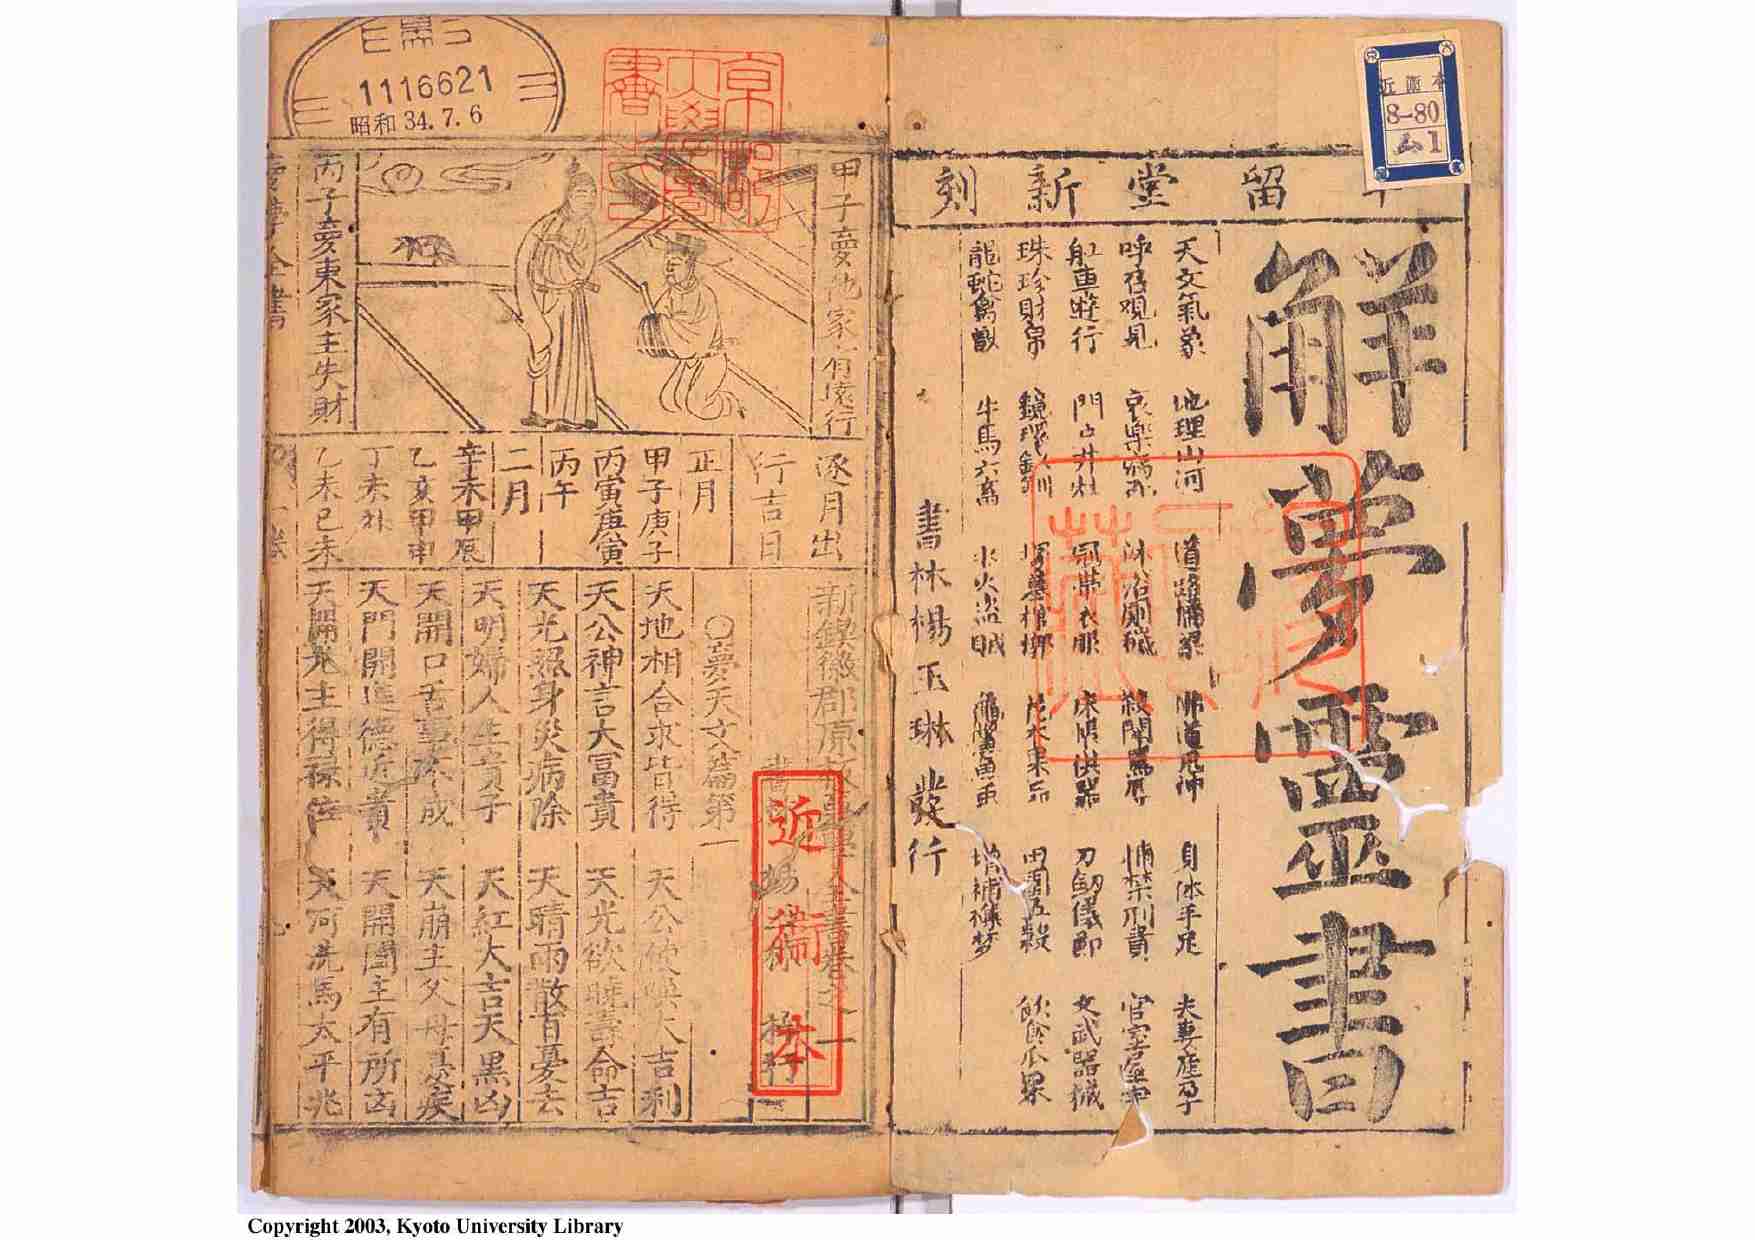 留堂新刻
解夢靈書
天文氣象 地理山河 道路橋梁 佛道鬼神 身体手足 夫妻産孕
呼召觀見 哀樂病死 沐浴廁穢 殺鬪罵辱 捕禁刑責 官室屋宅
舡車遊行 門户井灶 冠帯衣服 床帳供器 刀劔儀節 文武器械
珠珍財帛 鏡環釵釧 塚墓棺槨 花木果品 田園五穀 飲食瓜果
龍蛇禽獸 牛馬六畜 水火盗賊 龜鱉魚虫 増補襍梦
書林楊玉琳發行
近衞本
8-80
ム1
1116621
昭和34.7.6
甲子夢他家有遠行
丙子夢東家主失財
逐月出
行吉日
正月
甲子庚子
丙寅庚寅
丙午
二月
辛未甲辰
乙亥甲申
丁未
乙未已未
新鋟徽郡原板夢學全書卷之一
書林 楊 梓行
近衞本
○夢天文篇第一
天地相合求皆得 天公使喚大吉利
天公神言大冨貴 天光欲曉壽命吉
天光照身災病除 天晴雨散百憂去
天明婦人生貴子 天紅大吉天黑凶
天開口舌事不成 天崩主父母憂疾
天門開進德近貴 天開闔主有所凶
天開光主得祿位 天河洗馬太平兆
Copyright 2003, Kyoto University Library